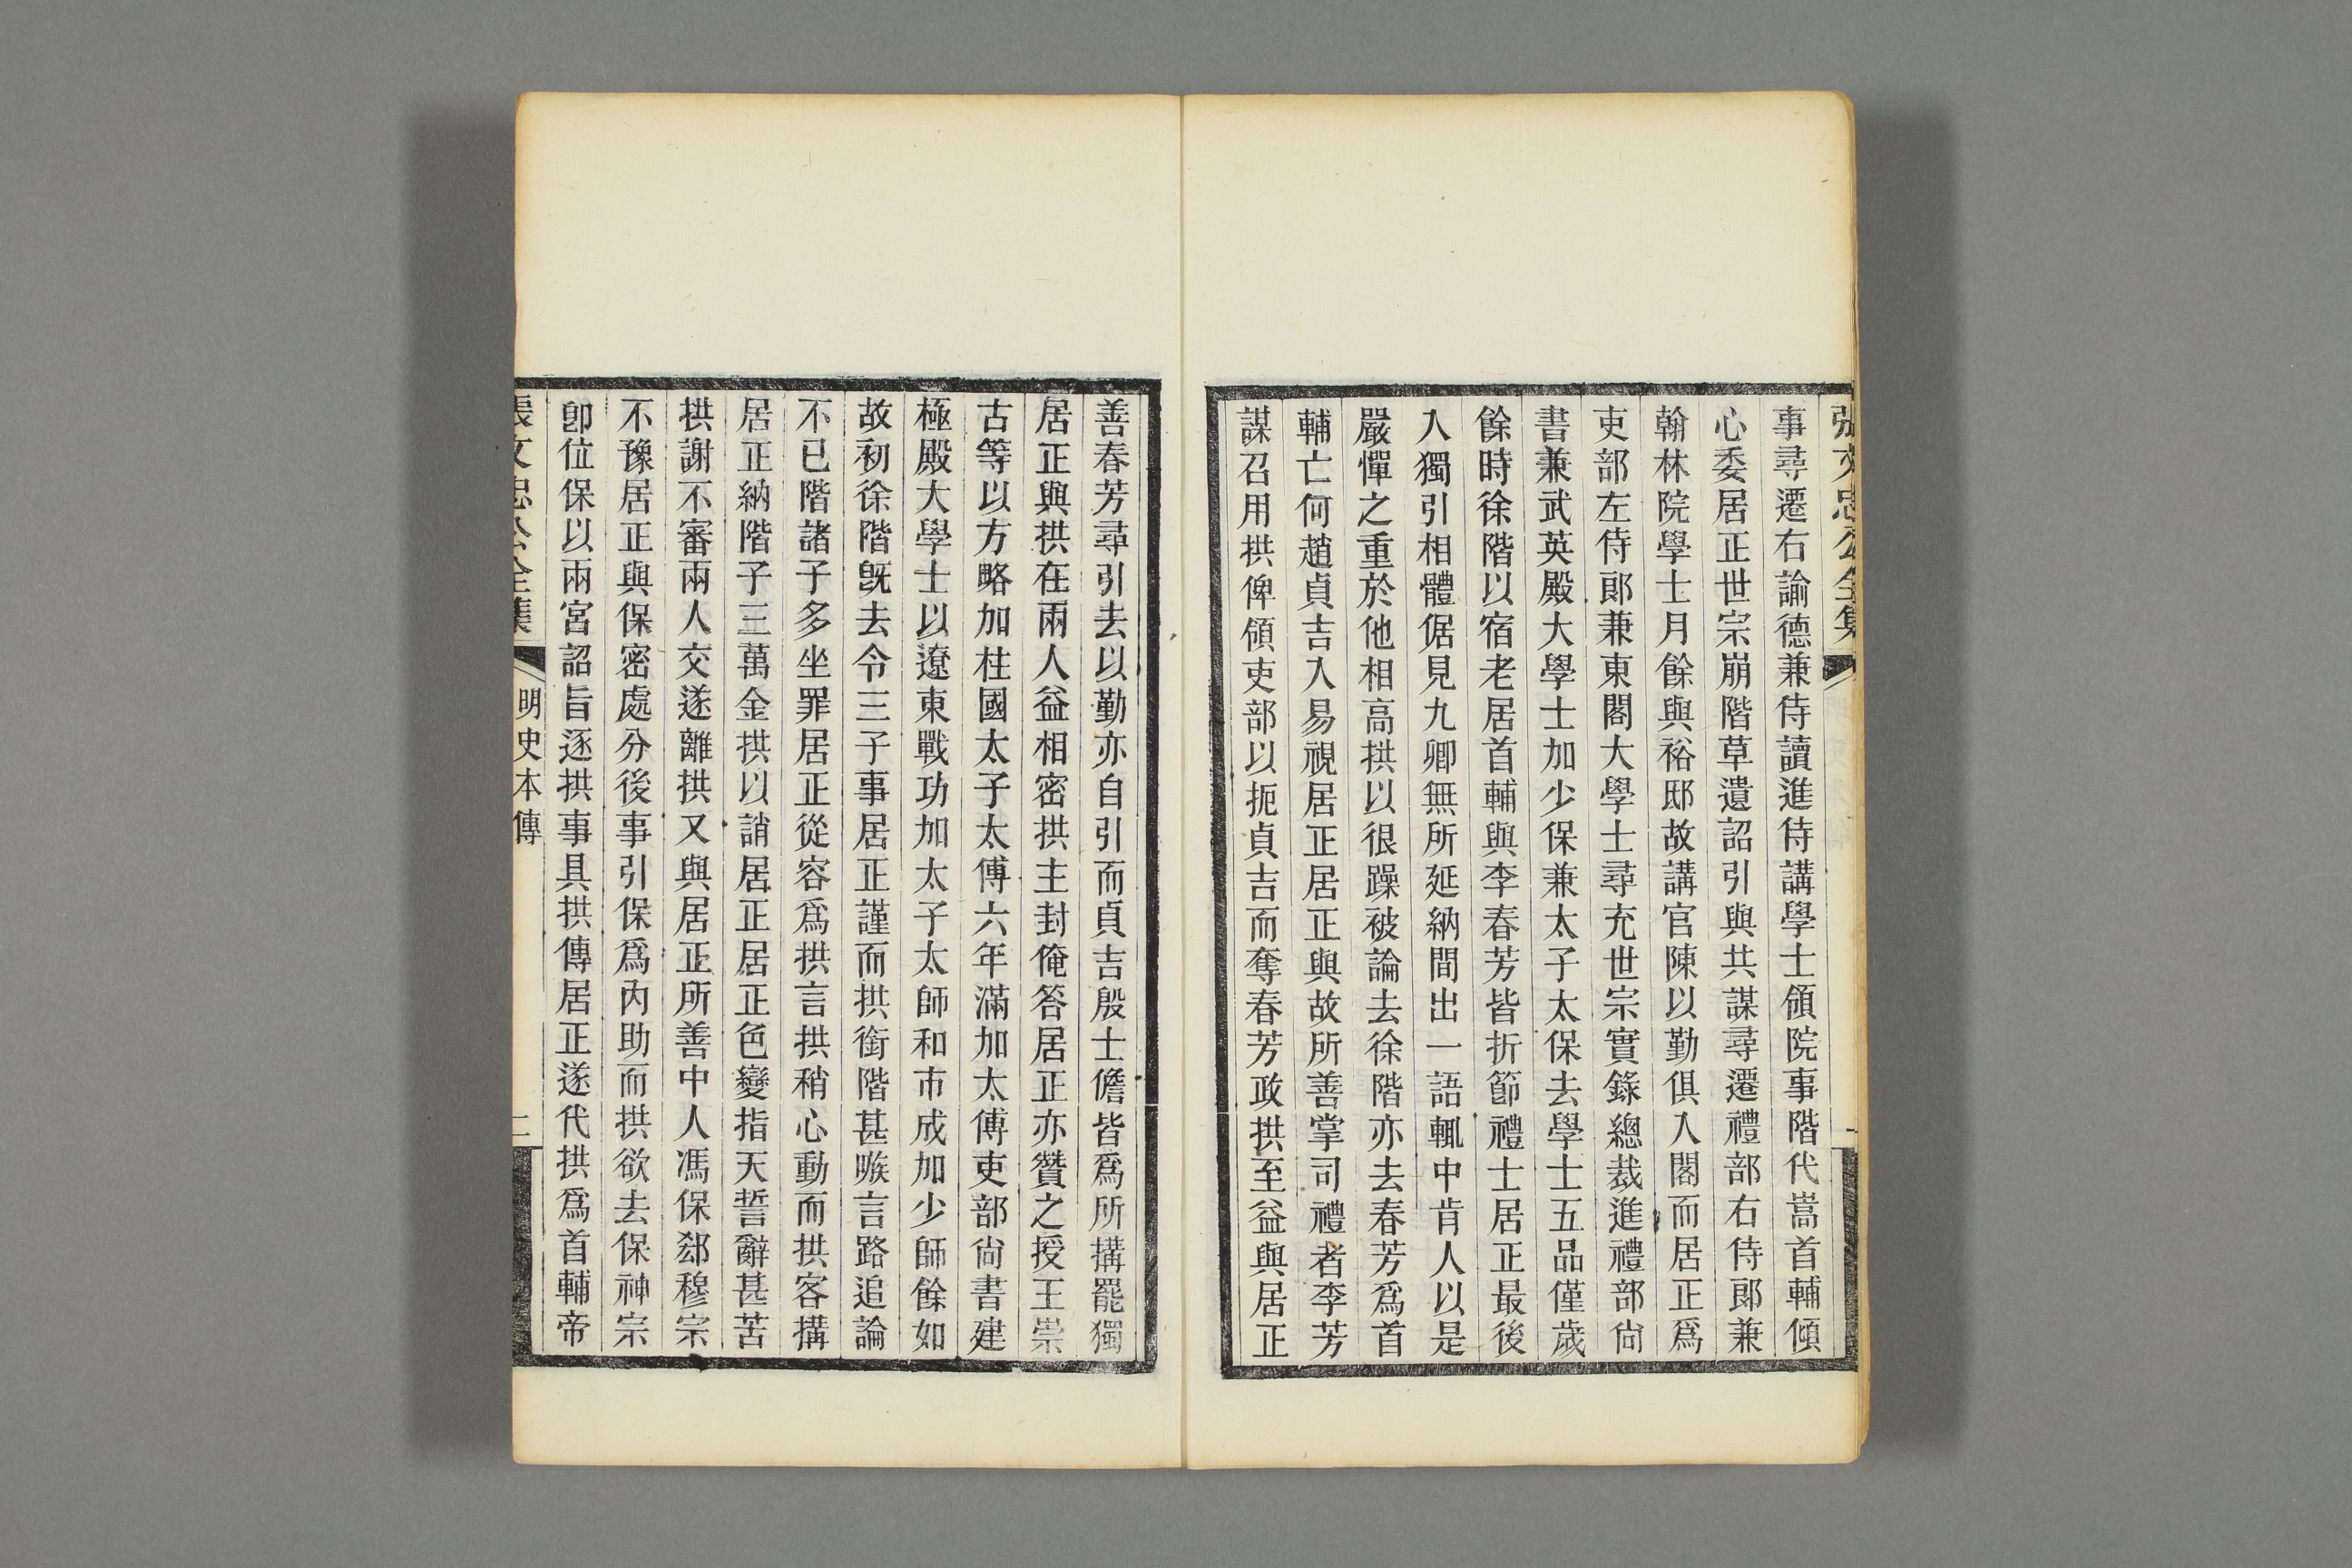 張文忠公全集
一
事尋遷右諭德兼侍讀進侍講學士領院事階代嵩首輔傾
心委居正世宗崩階草遺詔引與共謀尋遷禮部右侍郎兼
翰林院學士月餘與裕邸故講官陳以勤俱入閣而居正爲
吏部左侍郎兼東閣大學士尋充世宗實錄總裁進禮部尙
書兼武英殿大學士加少保兼太子太保去學士五品僅歲
餘時徐階以宿老居首輔與李春芳皆折節禮士居正最後
入獨引相體倨見九卿無所延納間出一語輒中肯人以是
嚴憚之重於他相高拱以很躁被論去徐階亦去春芳爲首
輔亡何趙貞吉入易視居正居正與故所善掌司禮者李芳
謀召用拱俾領吏部以扼貞吉而奪春芳政拱至益與居正
善春芳尋引去以勤亦自引而貞吉殷士儋皆爲所搆罷獨
居正與拱在兩人益相密拱主封俺答居正亦贊之授王崇
古等以方略加柱國太子太傅六年滿加太傅吏部尙書建
極殿大學士以遼東戰功加太子太師和市成加少師餘如
故初徐階旣去令三子事居正謹而拱銜階甚嗾言路追論
不已階諸子多坐罪居正從容爲拱言拱稍心動而拱客搆
居正納階子三萬金拱以誚居正居正色變指天誓辭甚苦
拱謝不審兩人交遂離拱又與居正所善中人馮保郄穆宗
不豫居正與保密處分後事引保爲內助而拱欲去保神宗
卽位保以兩宮詔旨逐拱事具拱傳居正遂代拱爲首輔帝
張文忠公全集
明史本傳
二